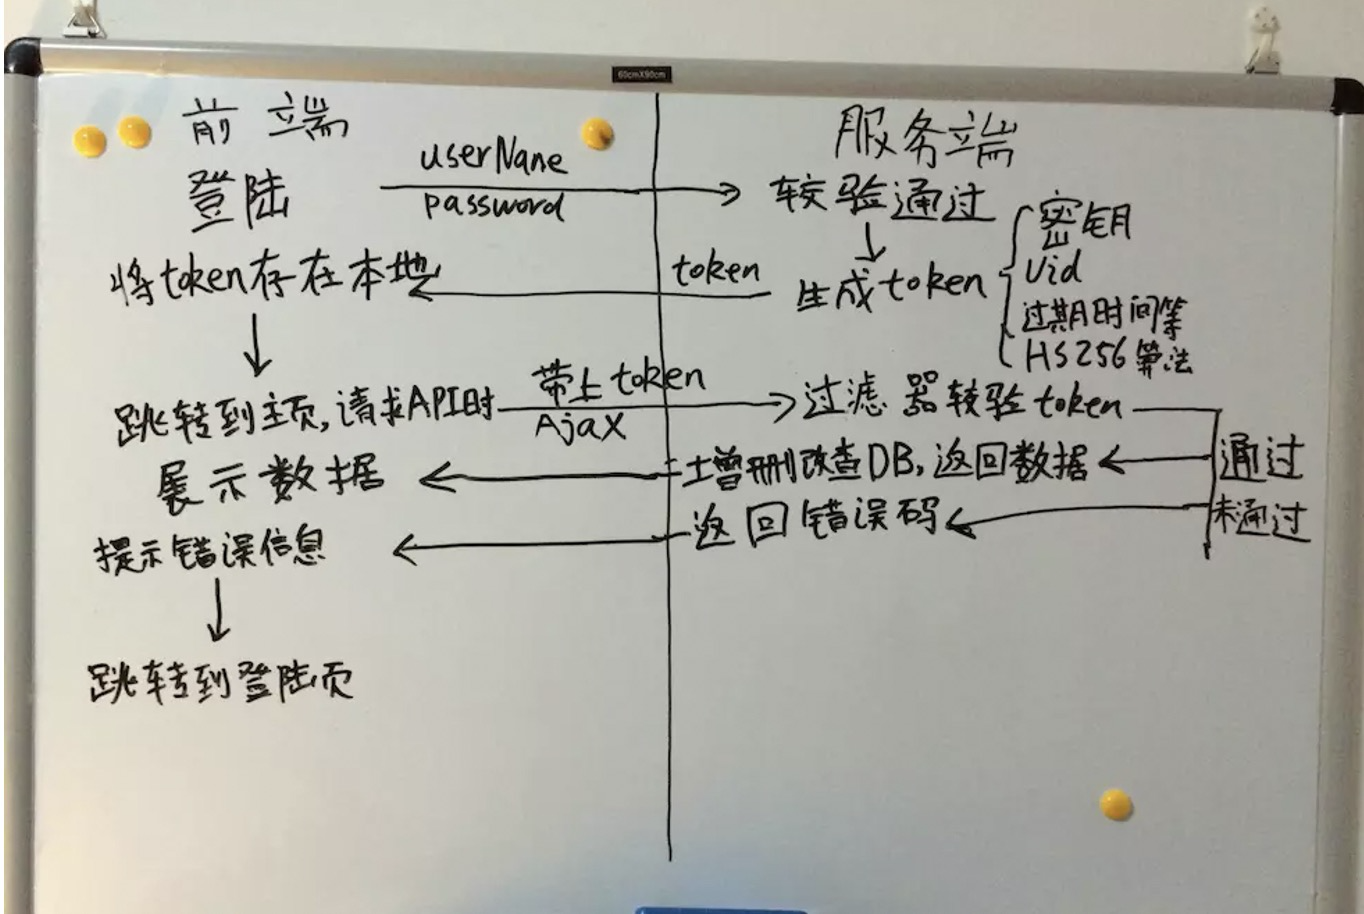 60cmX90cm
前端
服务端
登陆
userName
password
较验通过
将token存在本地
token
生成token
密钥
Uid
过期时间等
HS256算法
跳转到主页,请求API时
带上token
Ajax
过滤器较验token
展示数据
增删改查DB,返回数据
通过
提示错误信息
返回错误码
未通过
跳转到登陆页